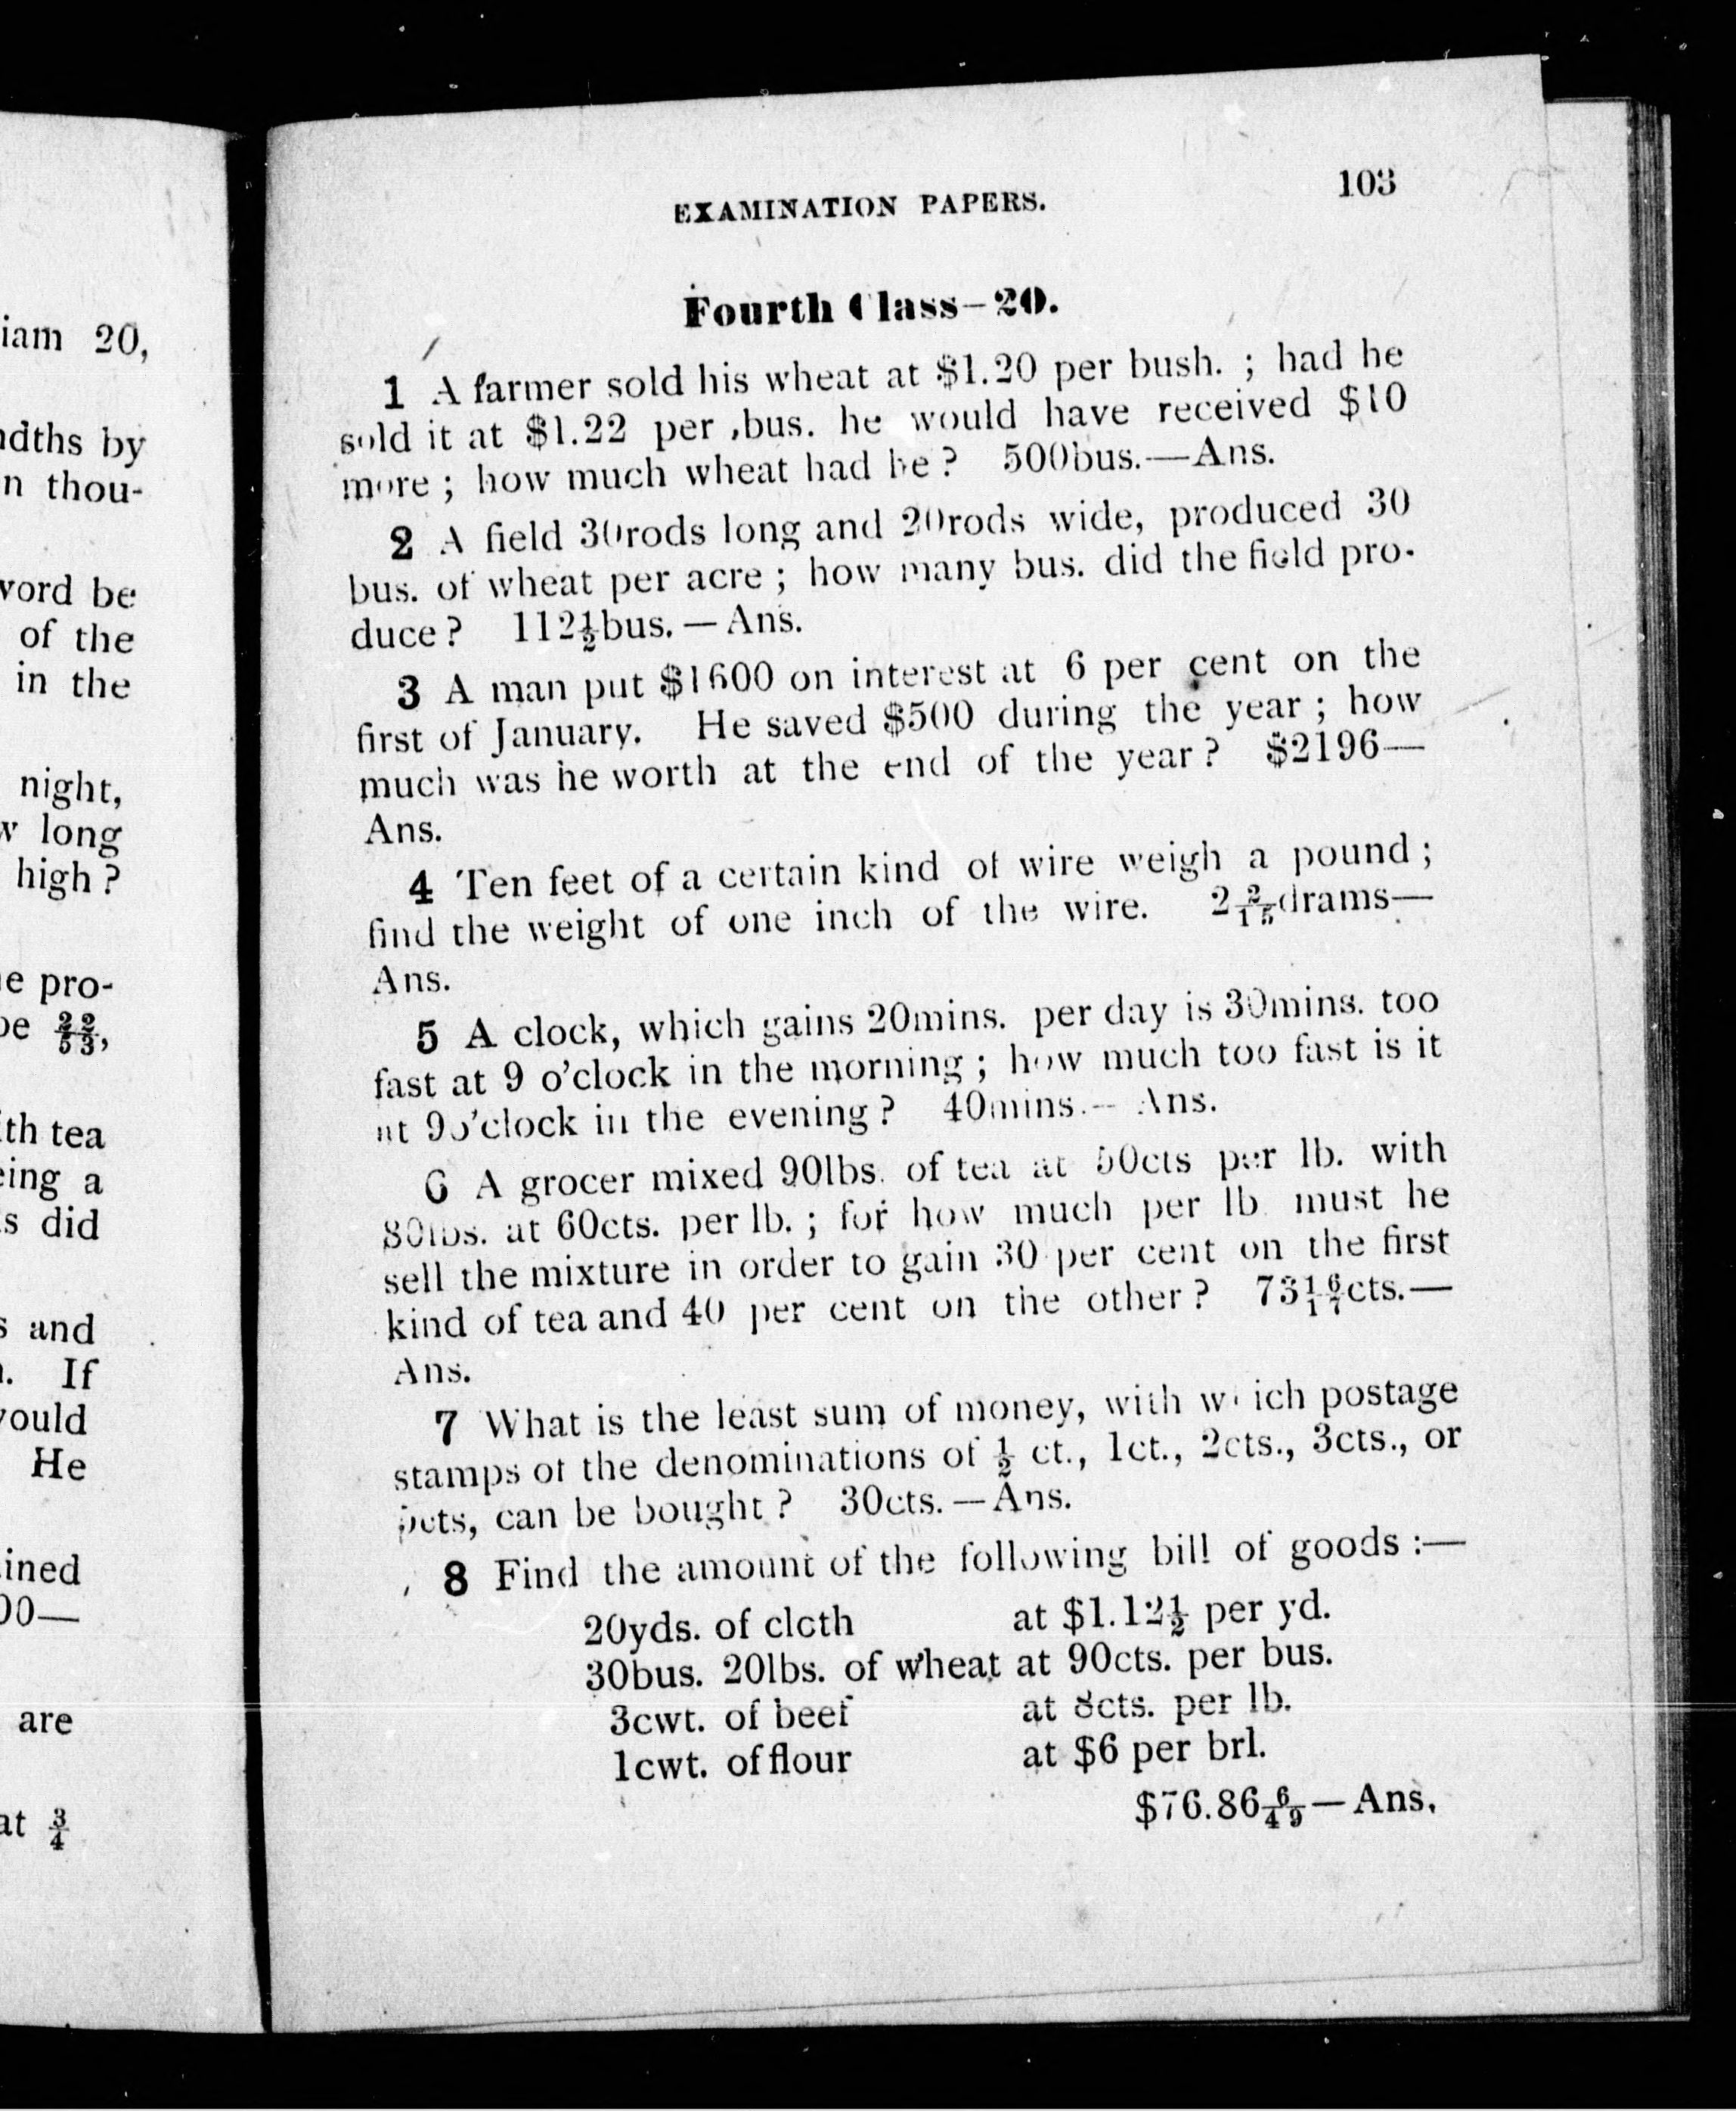 iam 20,
ndths by
n thou-
word be
of the
in the
night,
w long
high?
e pro-
be 22/53,
ith tea
eing a
s did
s and
. If
would
He
ined
00—
are
at 3/4
EXAMINATION PAPERS. 103
Fourth Class—20.
1 A farmer sold his wheat at $1.20 per bush. ; had he
sold it at $1.22 per bus. he would have received $10
more ; how much wheat had he? 500bus.—Ans.
2 A field 30rods long and 20rods wide, produced 30
bus. of wheat per acre ; how many bus. did the field pro-
duce? 112½bus.—Ans.
3 A man put $1600 on interest at 6 per cent on the
first of January. He saved $500 during the year ; how
much was he worth at the end of the year? $2196—
Ans.
4 Ten feet of a certain kind of wire weigh a pound ;
find the weight of one inch of the wire. 2 2/15drams—
Ans.
5 A clock, which gains 20mins. per day is 30mins. too
fast at 9 o'clock in the morning ; how much too fast is it
at 9o'clock in the evening? 40mins.—Ans.
6 A grocer mixed 90lbs. of tea at 50cts per lb. with
80lbs. at 60cts. per lb. ; for how much per lb must he
sell the mixture in order to gain 30 per cent on the first
kind of tea and 40 per cent on the other? 73 16/17cts.—
Ans.
7 What is the least sum of money, with which postage
stamps of the denominations of ½ ct., 1ct., 2cts., 3cts., or
5cts, can be bought? 30cts.—Ans.
8 Find the amount of the following bill of goods :—
20yds. of cloth at $1.12½ per yd.
30bus. 20lbs. of wheat at 90cts. per bus.
3cwt. of beef at 8cts. per lb.
1cwt. of flour at $6 per brl.
$76.86 6/49—Ans.